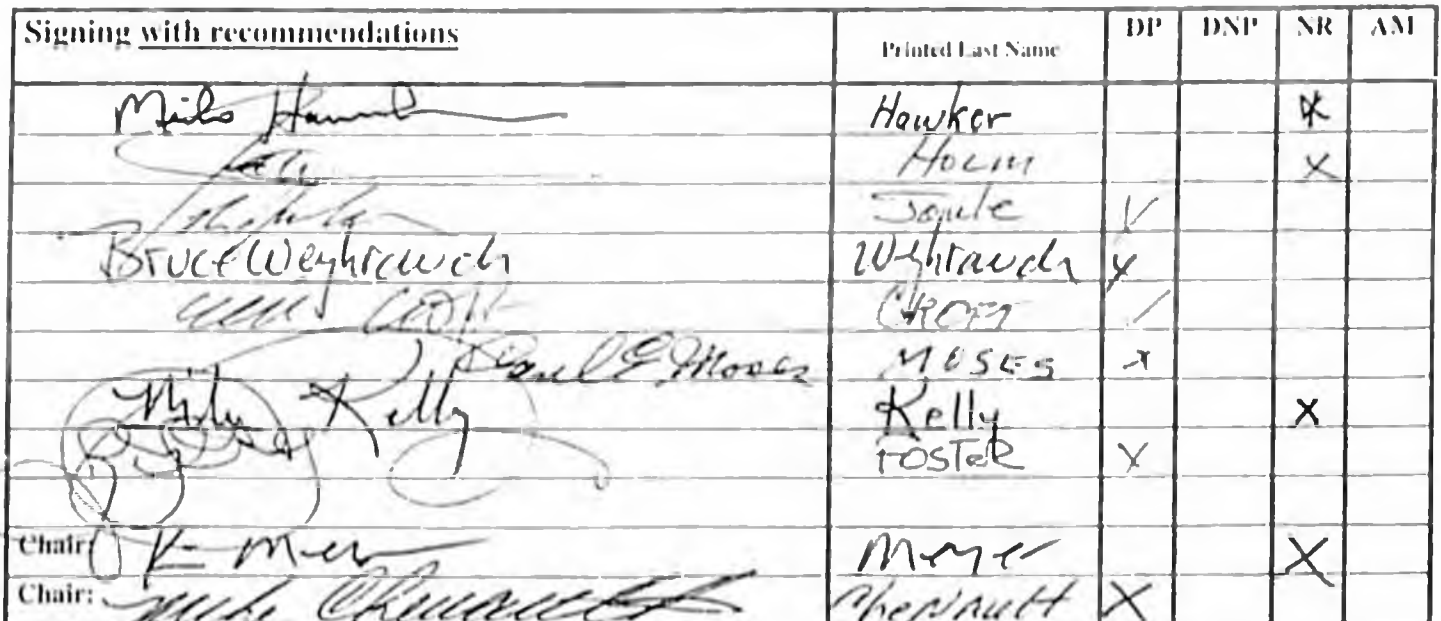 Signing with recommendations Printed Last Name DP DNP NR AM
Mike Hawker X
Holm X
Joule
Bruce Weyhrauch Weyhrauch X
Croft
Paul E Moses MOSES X
Mike Kelly Kelly X
FOSTER X
Chair: Meyer X
Chair: Mike Chenault Chenault X